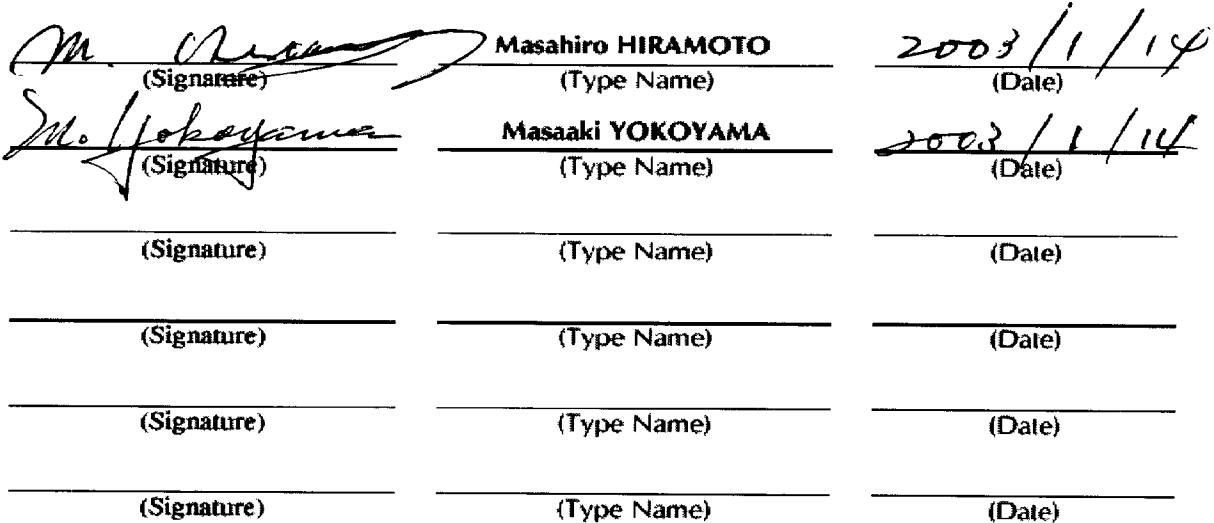 M. Masahiro HIRAMOTO 2003/1/14
(Signature) (Type Name) (Date)
M. Yokoyama Masaaki YOKOYAMA 2003/1/14
(Signature) (Type Name) (Date)
(Signature) (Type Name) (Date)
(Signature) (Type Name) (Date)
(Signature) (Type Name) (Date)
(Signature) (Type Name) (Date)